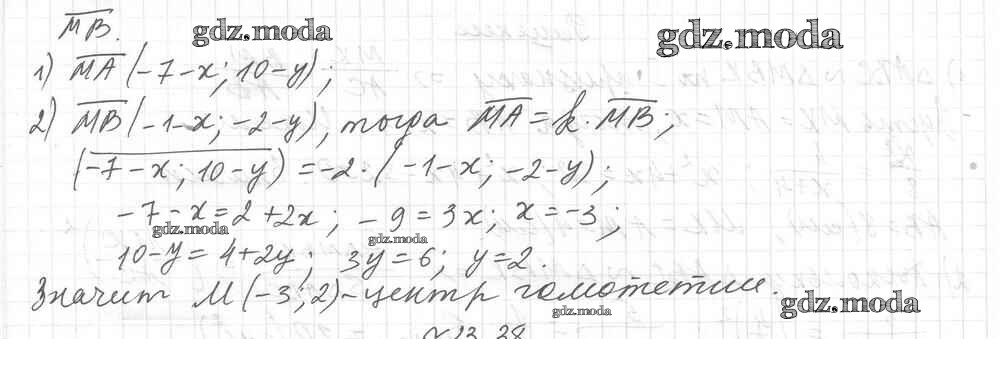 MB.
gdz.moda
gdz.moda
1) MA (-7-x; 10-y);
2) MB (-1-x; -2-y), тогда MA = k·MB;
(-7-x; 10-y) = -2·(-1-x; -2-y);
-7-x=2+2x; -9=3x; x=-3;
gdz.moda
gdz.moda
10-y=4+2y; 3y=6; y=2.
Значит M(-3; 2)-центр гомотетии.
gdz.moda
gdz.moda